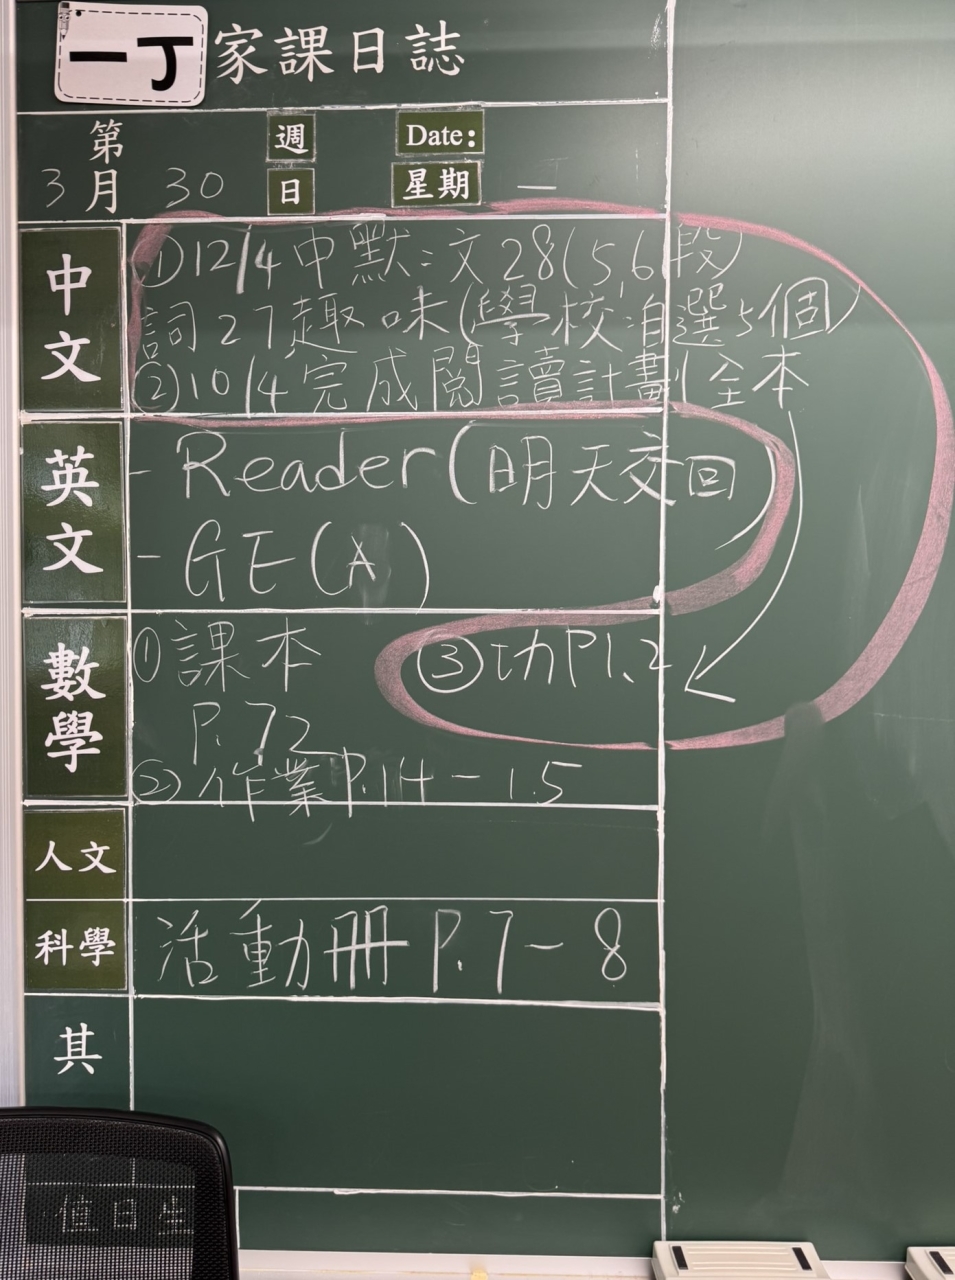 一丁 家課日誌
第 週 Date:
3月 30 日 星期 一
中文
①12/4中默:文28(5,6段)
詞27,趣味(學校自選5個)
②10/4完成閱讀計劃全本
英文
- Reader(明天交回)
- GE(A)
數學
①課本 ③功P1.2
P.72
②作業P.14-15
人文
科學
活動冊P.7-8
其
值日生